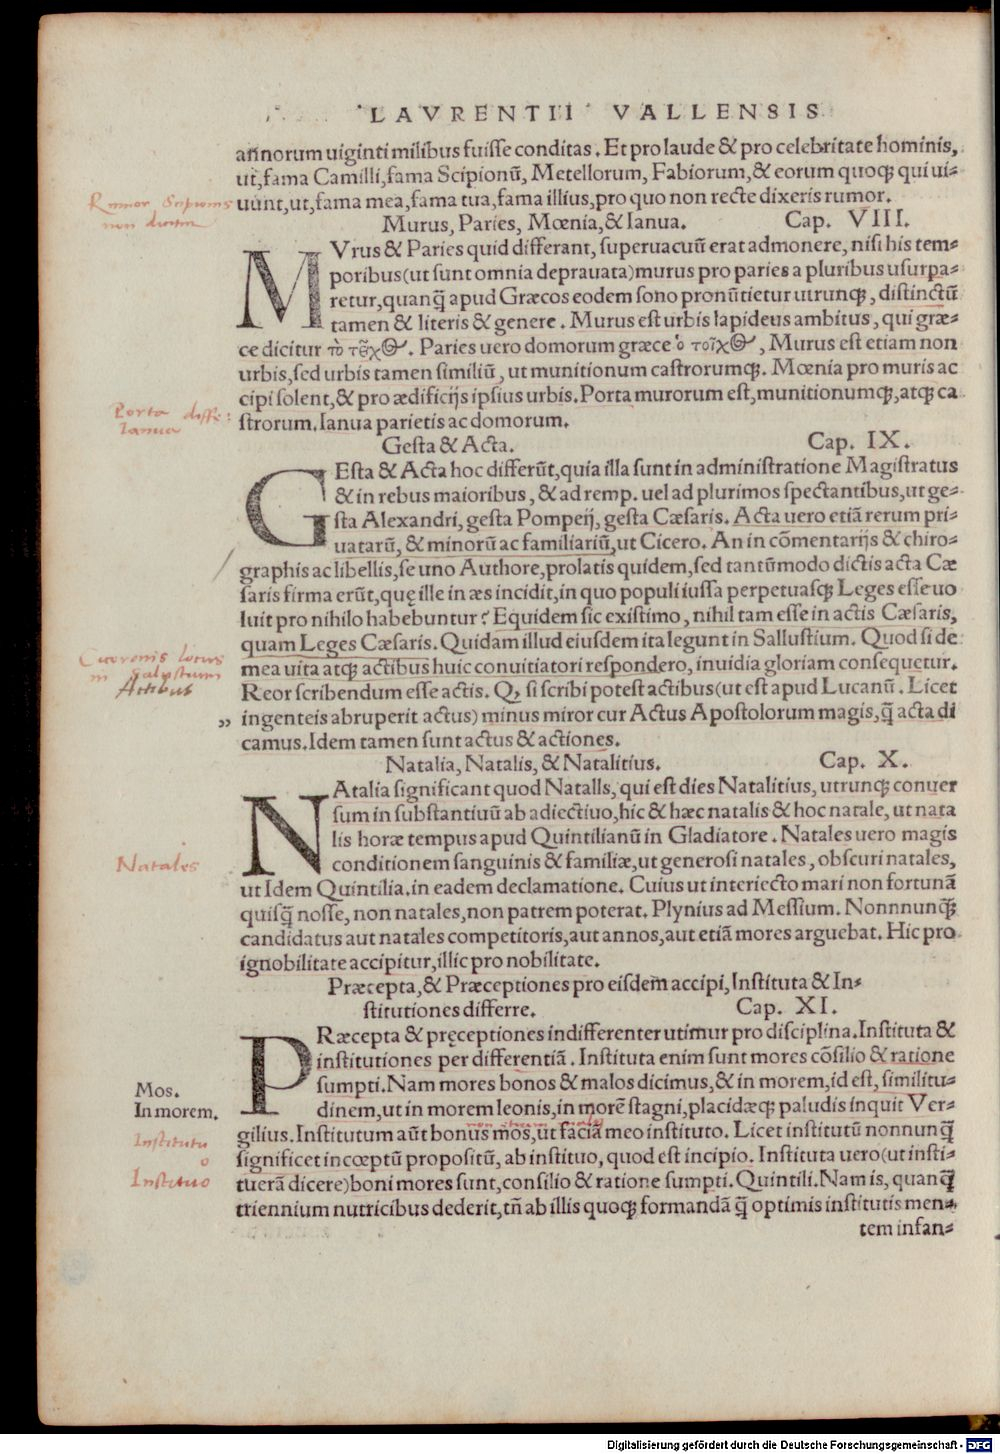 LAVRENTII VALLENSIS
annorum uiginti milibus fuiſſe conditas. Et pro laude & pro celebritate hominis,
ut, fama Camilli, fama Scipionũ, Metellorum, Fabiorum, & eorum quoqꝫ qui ui-
uunt, ut, fama mea, fama tua, fama illius, pro quo non recte dixeris rumor.
Rumor Scipionis
non dicitur
Murus, Paries, Mœnia, & Ianua. Cap. VIII.
MVrus & Paries quid differant, ſuperuacuũ erat admonere, niſi his tem-
poribus (ut ſunt omnia deprauata) murus pro paries a pluribus uſurpa-
retur, quanq̃ apud Græcos eodem ſono pronũtietur utrunqꝫ, diſtinctũ
tamen & literis & genere. Murus eſt urbis lapideus ambitus, qui græ-
ce dicitur τὸ τεῖχος. Paries uero domorum græce ὁ τοῖχος, Murus eſt etiam non
urbis, ſed urbis tamen ſimiliũ, ut munitionum caſtrorumqꝫ. Mœnia pro muris ac
cipi ſolent, & pro ædificijs ipſius urbis. Porta murorum eſt, munitionumqꝫ, atqꝫ ca
ſtrorum. Ianua parietis ac domorum.
Porta diffe:
Ianua
Geſta & Acta. Cap. IX.
GEſta & Acta hoc differũt, quia illa ſunt in adminiſtratione Magiſtratus
& in rebus maioribus, & ad remp. uel ad plurimos ſpectantibus, ut ge-
ſta Alexandri, geſta Pompeij, geſta Cæſaris. Acta uero etiã rerum pri-
uatarũ, & minorũ ac familiariũ, ut Cicero. An in cõmentarijs & chiro-
graphis ac libellis, ſe uno Authore, prolatis quidem, ſed tantũmodo dictis acta Cæ
ſaris firma erũt, quę ille in æs incidit, in quo populi iuſſa perpetuaſqꝫ Leges eſſe uo
luit pro nihilo habebuntur? Equidem ſic exiſtimo, nihil tam eſſe in actis Cæſaris,
quam Leges Cæſaris. Quidam illud eiuſdem ita legunt in Salluſtium. Quod ſi de
mea uita atqꝫ actibus huic conuitiatori reſpondero, inuidia gloriam conſequetur.
Reor ſcribendum eſſe actis. Qꝫ ſi ſcribi poteſt actibus (ut eſt apud Lucanũ. Licet
„ ingenteis abruperit actus) minus miror cur Actus Apoſtolorum magis, q̃ acta di
camus. Idem tamen ſunt actus & actiones.
Ciceronis locus
in Salustium
Actibus
Natalia, Natalis, & Natalitius. Cap. X.
NAtalia ſignificant quod Natalls, qui eſt dies Natalitius, utrunqꝫ conuer
ſum in ſubſtantiuũ ab adiectiuo, hic & hæc natalis & hoc natale, ut nata
lis horæ tempus apud Quintilianũ in Gladiatore. Natales uero magis
conditionem ſanguinis & familiæ, ut generoſi natales, obſcuri natales,
ut Idem Quintilia. in eadem declamatione. Cuius ut interiecto mari non fortunã
quiſq̃ noſſe, non natales, non patrem poterat. Plynius ad Meſſium. Nonnnunqꝫ
candidatus aut natales competitoris, aut annos, aut etiã mores arguebat. Hic pro
ignobilitate accipitur, illic pro nobilitate.
Natales
Præcepta, & Præceptiones pro eiſdem accipi, Inſtituta & In-
ſtitutiones differre. Cap. XI.
PRæcepta & pręceptiones indifferenter utimur pro diſciplina. Inſtituta &
inſtitutiones per differentiã. Inſtituta enim ſunt mores cõſilio & ratione
ſumpti. Nam mores bonos & malos dicimus, & in morem, id eſt, ſimilitu-
dinem, ut in morem leonis, in morẽ ſtagni, placidæqꝫ paludis inquit Ver-
gilius. Inſtitutum aũt bonus mos, ut faciã meo inſtituto. Licet inſtitutũ nonnunq̃
ſignificet incœptũ propoſitũ, ab inſtituo, quod eſt incipio. Inſtituta uero (ut inſti-
tuerã dicere) boni mores ſunt, conſilio & ratione ſumpti. Quintili. Nam is, quanq̃
triennium nutricibus dederit, tñ ab illis quoqꝫ formandã q̃ optimis inſtitutis men-
tem infan-
Mos.
In morem.
Institutu
o
Instituo
Digitalisierung gefördert durch die Deutsche Forschungsgemeinschaft - DFG